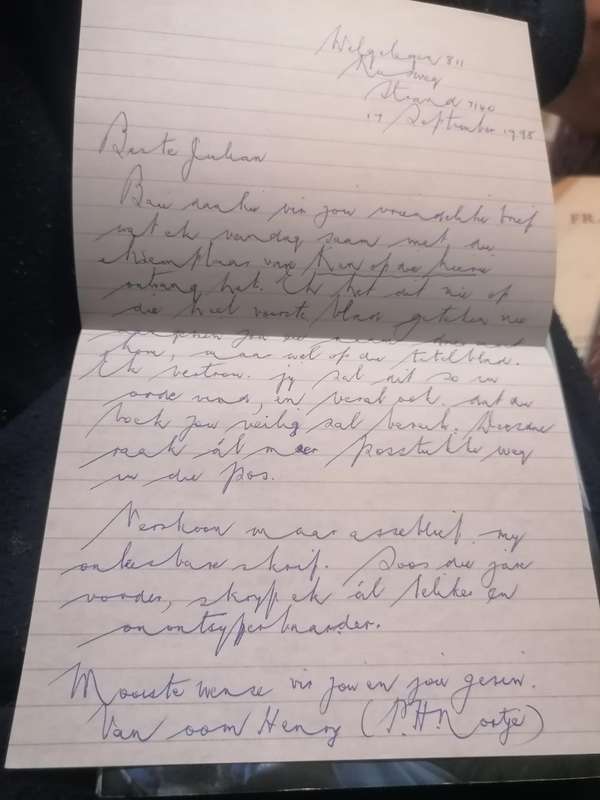 Welgelegen 811
Strand 7140
17 September 1998
Beste Julian
Baie dankie vir jou vriendelike brief
wat ek vandag saam met die
van Kan op die
ontvang het. Ek het dit nie op
die heel voorste blad geteken nie
hom, maar wel op die titelblad.
Ek vertrou jy sal dit so in
orde vind, en veral ook dat die
boek jou veilig sal bereik. Deesdae
raak ál meer posstukke weg
in die pos.
Verskoon maar asseblief my
onleesbare skrif. Soos die jare
vorder, skryf ek ál leliker en
onontsyferbaarder.
Mooiste wense vir jou en jou gesin.
Van oom Henry (P.H. Nortje)
FRA